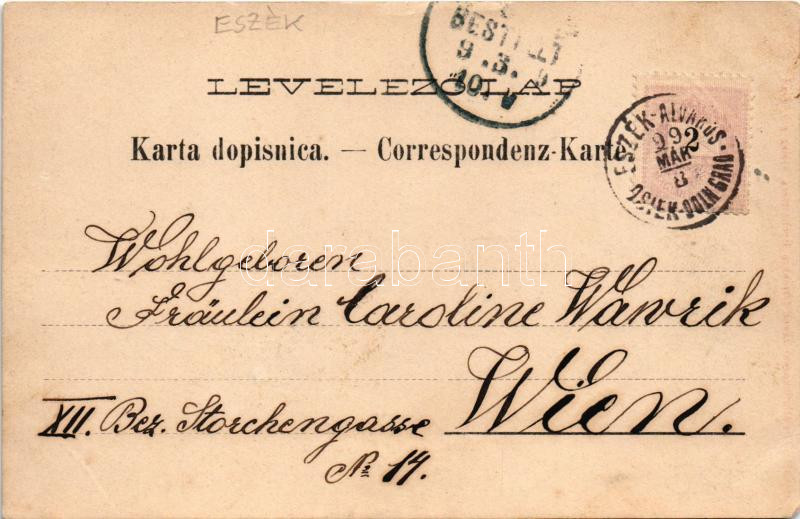 ESZÈK
BESTELLT
9.3.
LEVELEZŐ-LAP
Karta dopisnica. — Correspondenz-Karte
ESZÉK-ALVÁROS
992
MÁR
8
OSIEK-DOLN GRAD
Wohlgeboren
Fräulein Caroline Wawrik
Wien.
XII. Bez. Storchengasse
№ 14.
darabanth.com